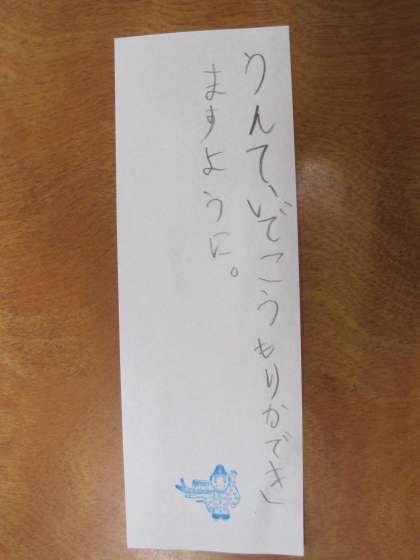 うんていでこうもりかでき
ますように。